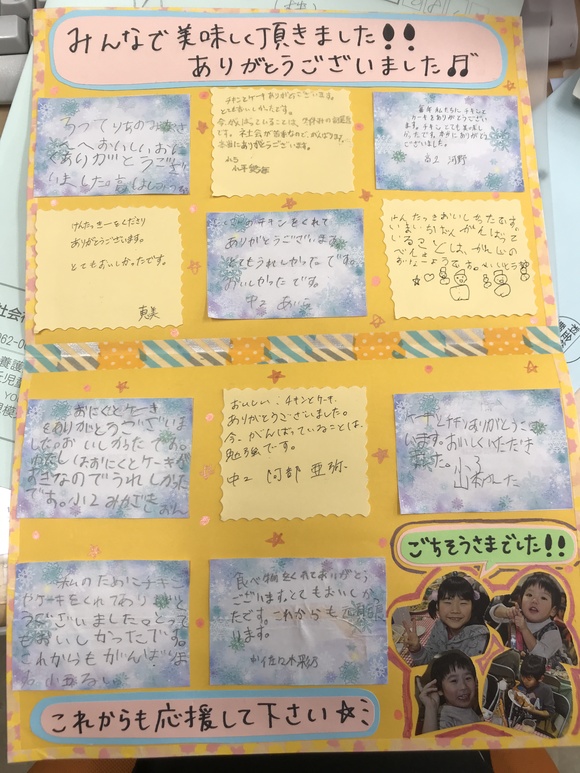 みんなで美味しく頂きました!!
ありがとうございました♫
おいしいおに
くありがとうござ
いました。
チキンとケーキありがとうございます。
とてもおいしかったです。
今、がんばっていることは、
です。社会が苦手なので、がんばります。
本当にありがとうございます。
毎年私たちにチキンと
ケーキをありがとうございま
す。チキンとても美味し
かったです。本当にありがとう
ございました。
高2 河野
けんたっきーをくださり
ありがとうございます。
とてもおいしかったです。
恵美
たくさんのチキンをくれて
ありがとうございます。
とてもうれしかったです。
おいしかったです。
中2 あいら
けんたっきおいしかったです。
いまいちばんがんばって
いることは、かんじの
べんきょう
おにくとケーキ
をありがとうございま
した。おいしかったです。
わたしはおにくとケーキが
すきなのでうれしかった
です。小2
おいしい、チキンとケーキ
ありがとうございました。
今、がんばっていることは、
勉強です。
中2 阿部 亜弥
ケーキとチキンありがとうござ
います。おいしくいただき
ました。
私のためにチキン
やケーキをくれてありがと
うございました。とって
もおいしかったです。
これからもがんばりま
す 小五 るい
食べ物をくれてありがとう
ございます。とてもおいしかっ
たです。これからも
ります。
佐々木
ごちそうさまでした!!
これからも応援して下さい☆